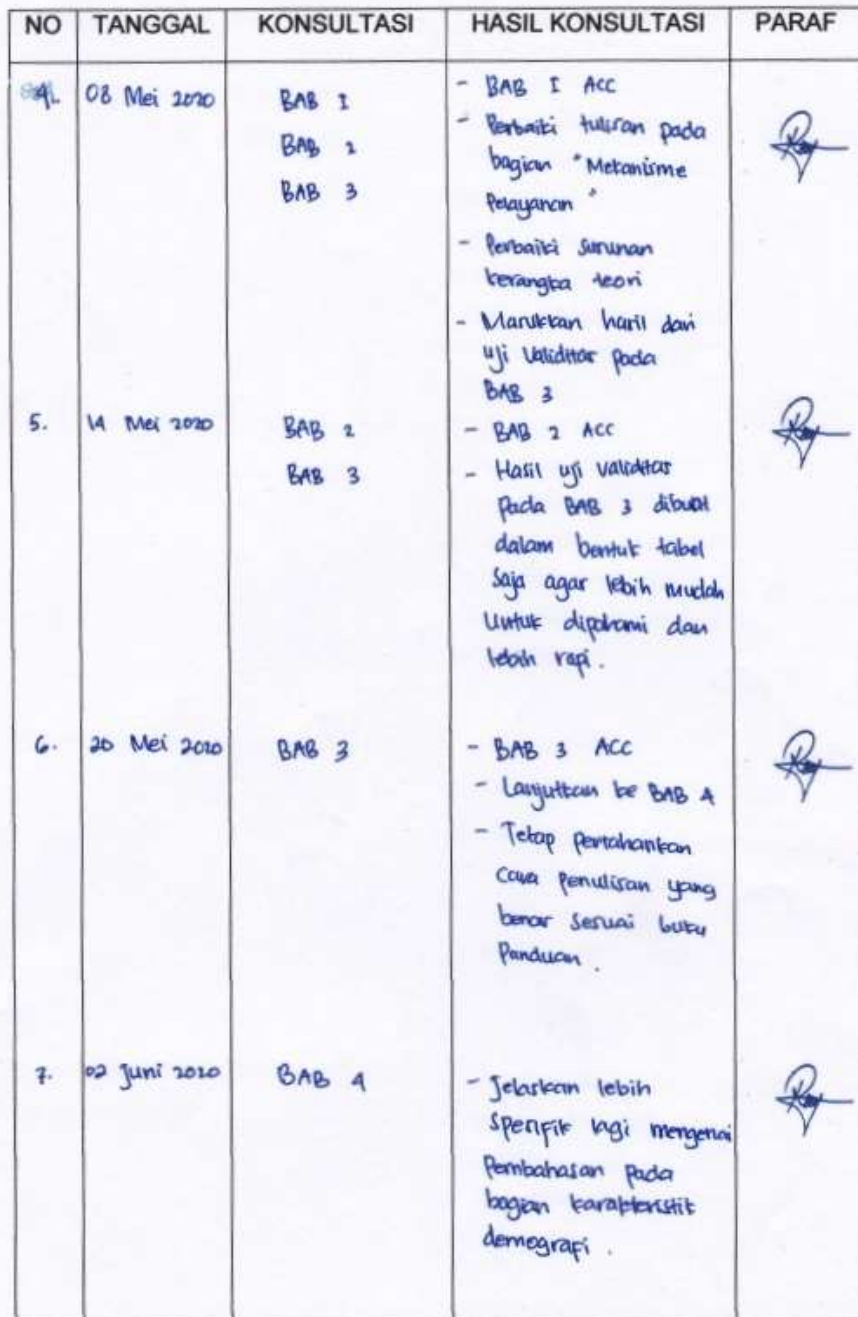 NO TANGGAL KONSULTASI HASIL KONSULTASI PARAF
4. 08 Mei 2020 BAB I - BAB I ACC
BAB 2 - Perbaiki tulisan pada
bagian "Mekanisme
BAB 3 Pelayanan"
- Perbaiki susunan
kerangka teori
- Masukkan hasil dari
uji validitas pada
BAB 3
5. 14 Mei 2020 BAB 2 - BAB 2 ACC
BAB 3 - Hasil uji validitas
pada BAB 3 dibuat
dalam bentuk tabel
saja agar lebih mudah
untuk dipahami dan
lebih rapi.
6. 20 Mei 2020 BAB 3 - BAB 3 ACC
- Lanjutkan ke BAB 4
- Tetap pertahankan
cara penulisan yang
benar sesuai buku
Panduan.
7. 02 Juni 2020 BAB 4 - Jelaskan lebih
spesifik lagi mengenai
Pembahasan pada
bagian karakteristik
demografi.